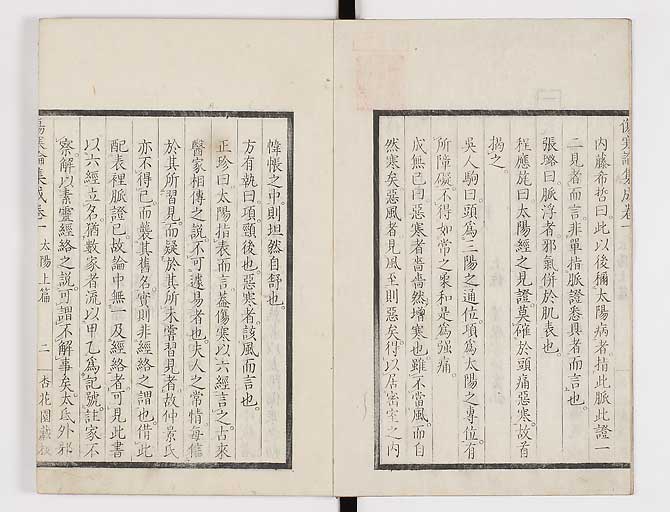 傷寒論集成卷一
內藤希哲曰此以後稱太陽病者指此脈此證一
二見者而言非單指脈證悉具者而言也
張璐曰脈浮者邪氣併於肌表也
程應旄曰太陽經之見證莫確於頭痛惡寒故首
揭之
吳人駒曰頭爲三陽之通位項爲太陽之專位有
所障礙不得如常之柔和是爲强痛
成無已曰惡寒者嗇嗇然增寒也雖不當風而自
然寒矣惡風者見風至則惡矣得以居密室之內
幃帳之中則坦然自舒也
方有執曰項頸後也惡寒者該風而言也
正珍曰太陽指表而言蓋傷寒以六經言之古來
醫家相傳之說不可遽易者也夫人之常情每信
於其所習見而疑於其所未嘗習見者故仲景氏
亦不得已而襲其舊名實則非經絡之謂也借此
配表裡脈證已故論中無一及經絡者可見此書
以六經立名猶數家者流以甲乙爲記號註家不
察解以素靈經絡之說可謂不解事矣太氐外邪
傷寒論集成卷一 太陽上篇 二 杏花園藏板